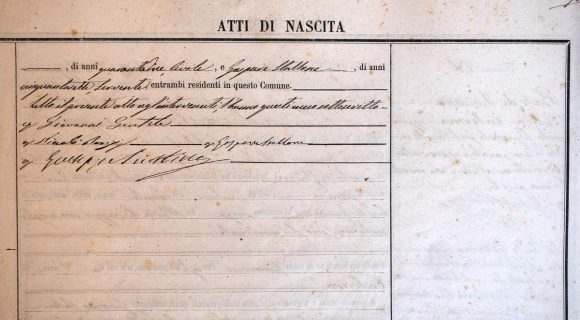 ATTI DI NASCITA
, di anni quarantadue civile, e Gaspare Mattone, di anni
cinquantasette, servente, entrambi residenti in questo Comune.
Letto il presente atto agl'intervenuti, l'hanno questi meco sottoscritto
Giovanni Gentile
Gaspare Mattone
Giuseppe